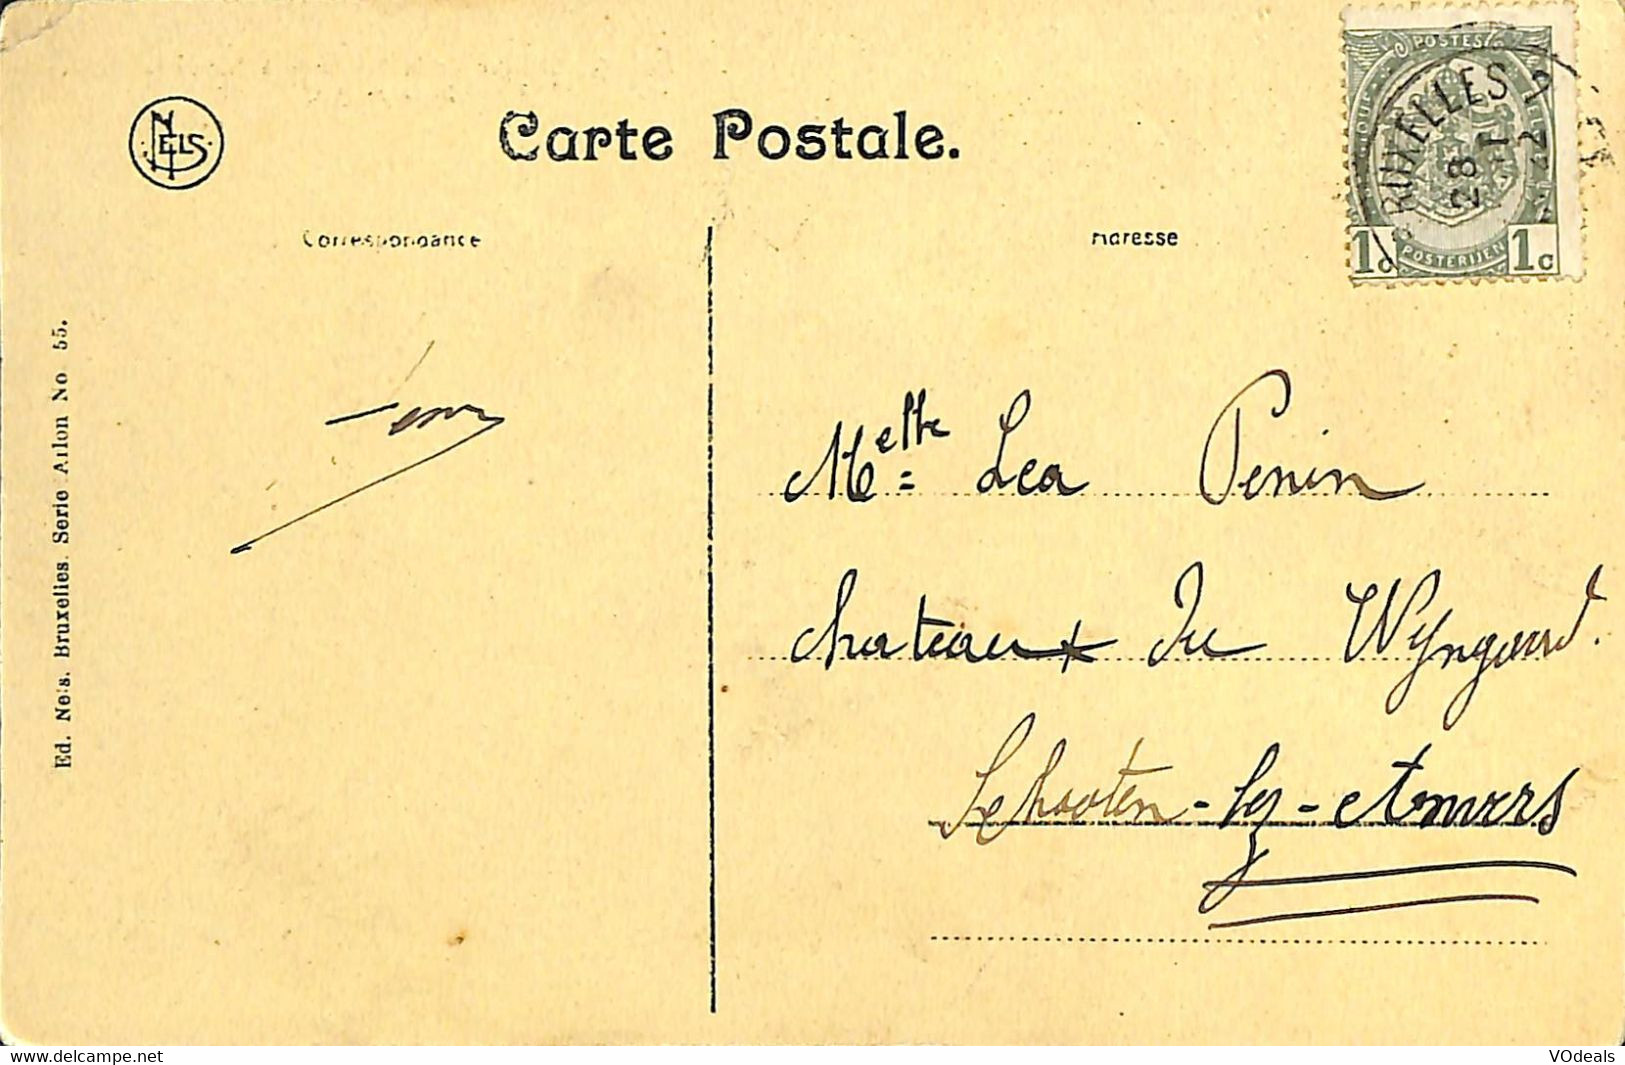 NELS
Carte Postale.
Correspondance
Adresse
POSTES
BRUXELLES
28
1
POSTERIJEN
1c 1c
Ed. Nels. Bruxelles. Serie Arlon No 55.
Melle Lea Penin
chateaux du Wyngaard.
Schooten-lez-Anvers
www.delcampe.net
VOdeals